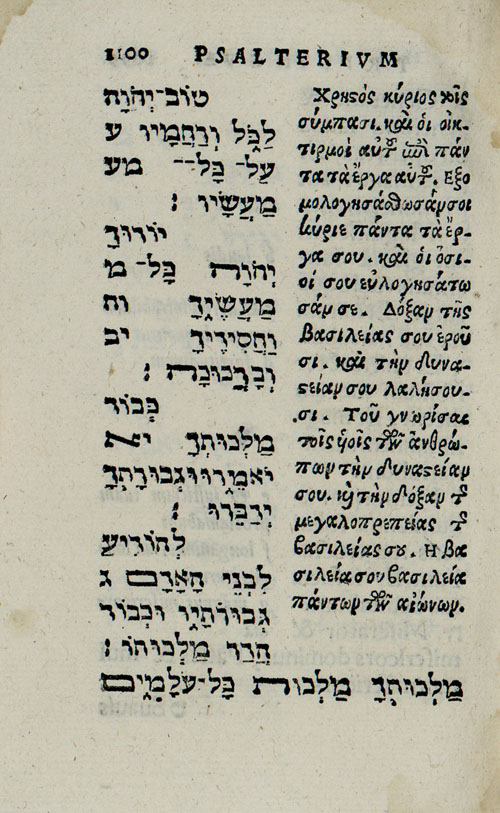 1100 PSALTERIVM
טוֹב־יְהוָֹה
לַכֹּל וְרַחֲמָיו ע
עַל־ כָּל־־ מע
מַעֲשָׂיו ׃
יוֹדוּךָ
יְהוָֹה כָּל־ מ
מַעֲשֶׂיךָ וח
וַחֲסִידֶיךָ יב
וְבָרְכוּכָה ׃
כְּבוֹד
מַלְכוּתְךָ יא
יֹאמֵרוּ וּגְבוּרָתְךָ
יְדַבֵּרוּ ׃
לְהוֹדִיעַ
לִבְנֵי הָאָדָם ג
גְּבוּרֹתָיו וּכְבוֹד
הֲדַר מַלְכוּתוֹ ׃
מַלְכוּתְךָ מַלְכוּת כָּל־עֹלָמִים
Χρηστὸς κύριος τοῖς
σύμπασι. καὶ οἱ οἰκ-
τιρμοὶ αὐτοῦ ἐπὶ πάν
τα τὰ ἔργα αὐτοῦ. Εξο
μολογησάσθωσάν σοι
κύριε πάντα τὰ ἔρ-
γα σου. καὶ οἱ ὅσι-
οί σου εὐλογησάτω
σάν σε. Δόξαν τῆς
βασιλείας σου ἐροῦ
σι. καὶ τὴν δυνα-
στείαν σου λαλήσου-
σι. Τοῦ γνωρίσαι
τοῖς υἱοῖς τῶν ἀνθρώ-
πων τὴν δυναστείαν
σου. καὶ τὴν δόξαν τῆς
μεγαλοπρεπείας τῆς
βασιλείας σου. Η βα
σιλεία σου βασιλεία
πάντων τῶν αἰώνων.